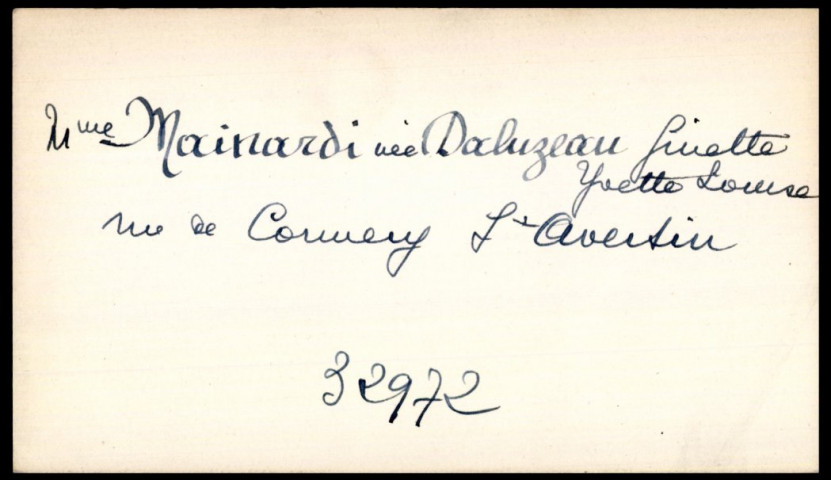 Mme Mainardi née Daluzeau Ginette
Yvette Louise
rue de Cormery St Avertin
32972